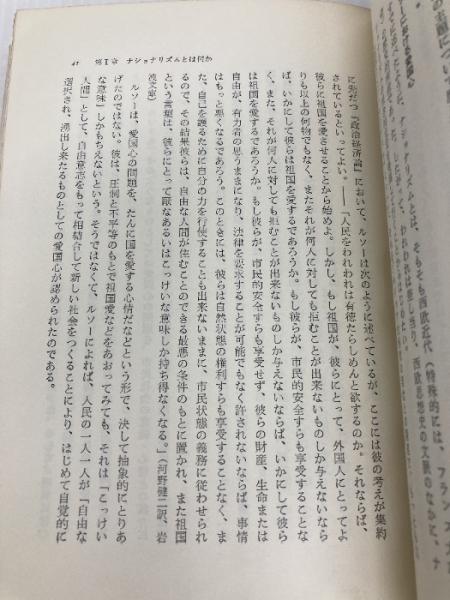 の主題につい
ナショナリズムとは、そもそも西欧近代(特殊的には、フランス
われわれは差し当り、西欧思想史の文脈のなかに、ナ
に先だつ『政治経済論』において、ルソーは次のように述べているが、ここには彼の考えが集約
されているといってよい。――「人民をわれわれは有徳たらしめんと欲するのか。それならば、
彼らに祖国を愛させることから始めよ。しかし、もし祖国が、彼らにとって、外国人にとってよ
りも以上の何物でもなく、またそれが何人に対しても拒むことが出来ないものしか与えないなら
ば、いかにして彼らは祖国を愛するであろうか。もし彼らが、市民的安全すらも享受することな
く、また、それが何人に対しても拒むことが出来ないものしか与えないならば、いかにして彼ら
は祖国を愛するであろうか。もし彼らが、市民的安全すらも享受せず、彼らの財産、生命または
自由が、有力者の思うままになり、法律を要求することが可能でもなく許されないならば、事情
はもっと悪くなるであろう。このときには、彼らは自然状態の権利すらも享受することなく、ま
た、自己を護るために自分の力を行使することも出来ないままに、市民状態の義務に従わせられ
るので、その結果彼らは、自由な人間が住むことのできる最悪の条件のもとに置かれ、また祖国
という言葉は、彼らにとって厭なあるいはこっけいな意味しか持ち得なくなる。」(河野健二訳、岩
波文庫)
ルソーは、愛国心の問題を、たんに国を愛する心情だなどという形で、決して抽象的にとりあ
げたのではない。彼は、圧制と不平等のもとで祖国愛などをあおってみても、それは「こっけい
な意味」しかもちえないという。そうではなくて、ルソーによれば、人民の一人一人が「自由な
人間」として、自由意志をもって相結合して新しい社会をつくることにより、はじめて自覚的に
選択され、湧出し来たるものとしての愛国心が認められたのである。
41 第Ⅰ章 ナショナリズムとは何か